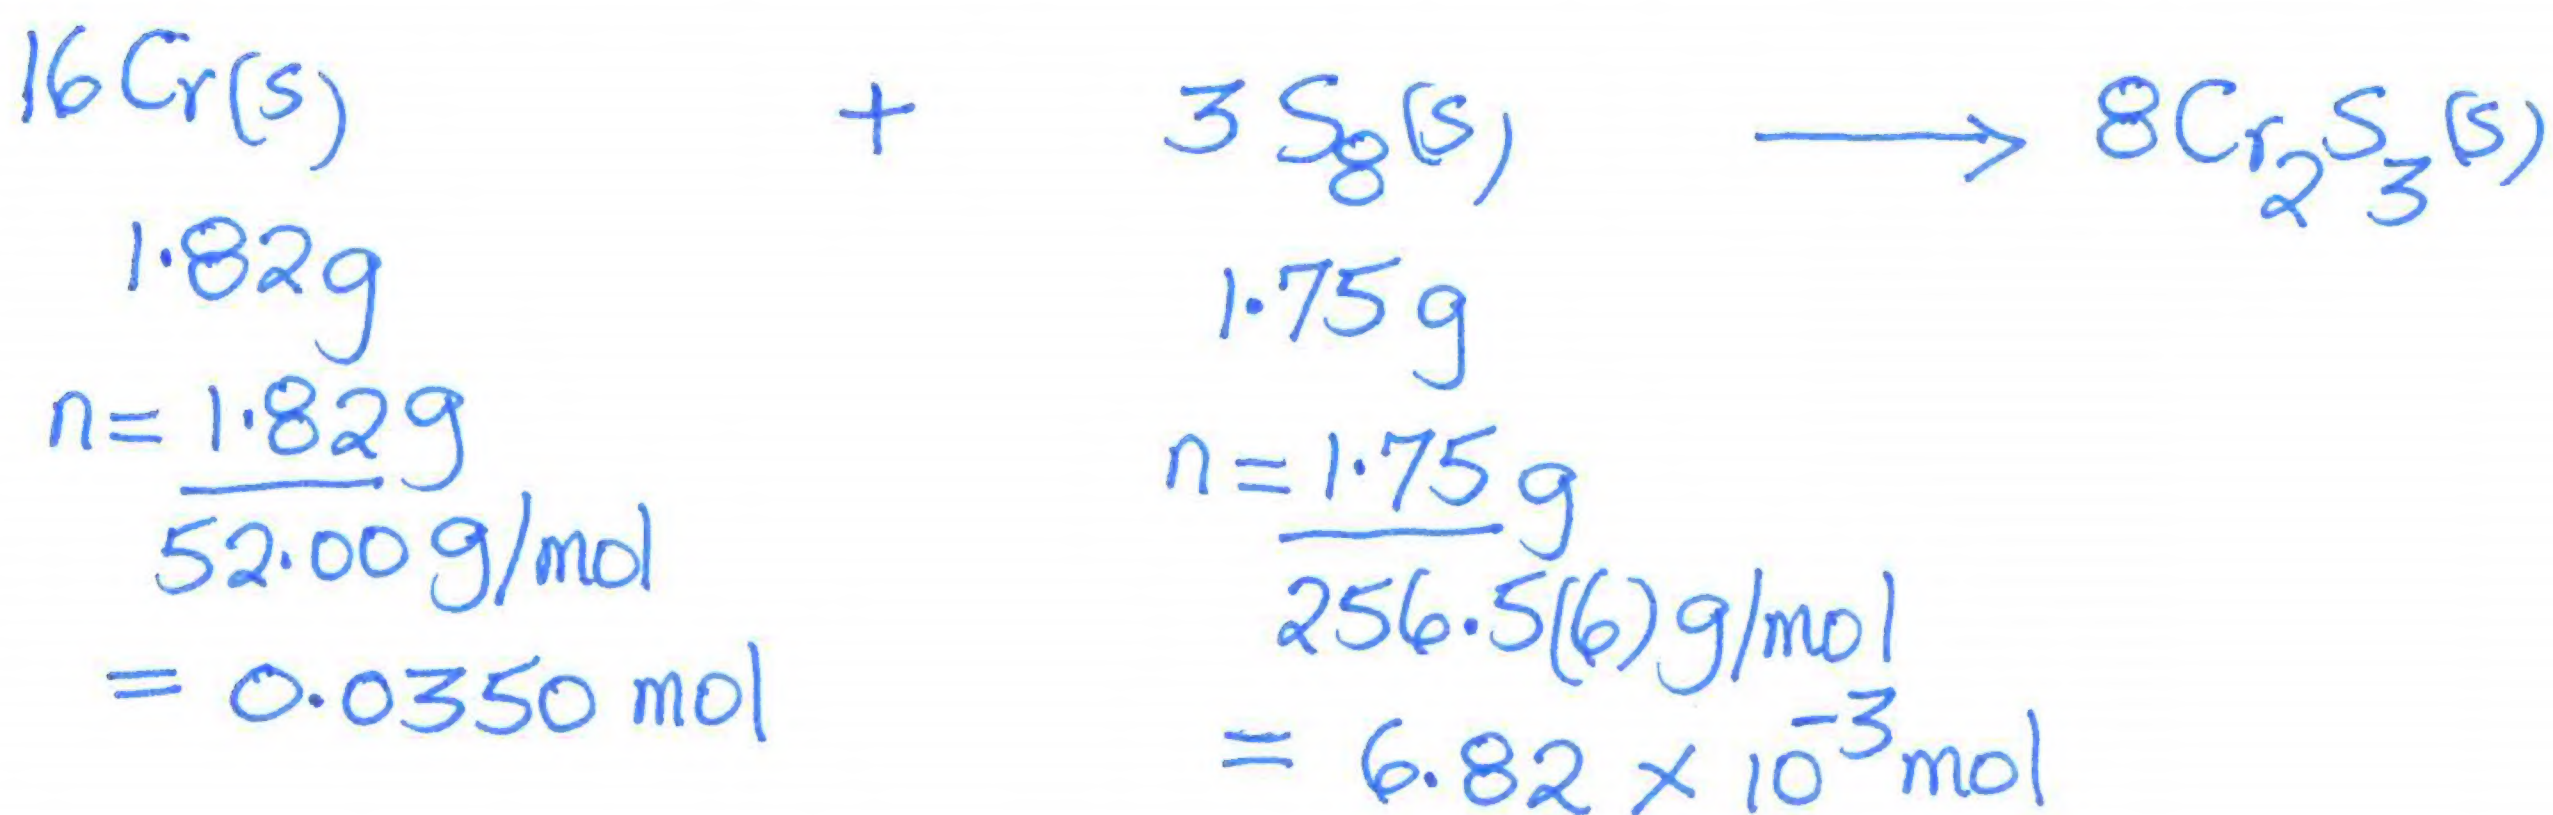 16Cr(s) + 3S₈(s) ⟶ 8Cr₂S₃(s)
1.82g
1.75g
n = 1.82g
52.00g/mol
= 0.0350 mol
n = 1.75g
256.5(6)g/mol
= 6.82 × 10⁻³ mol